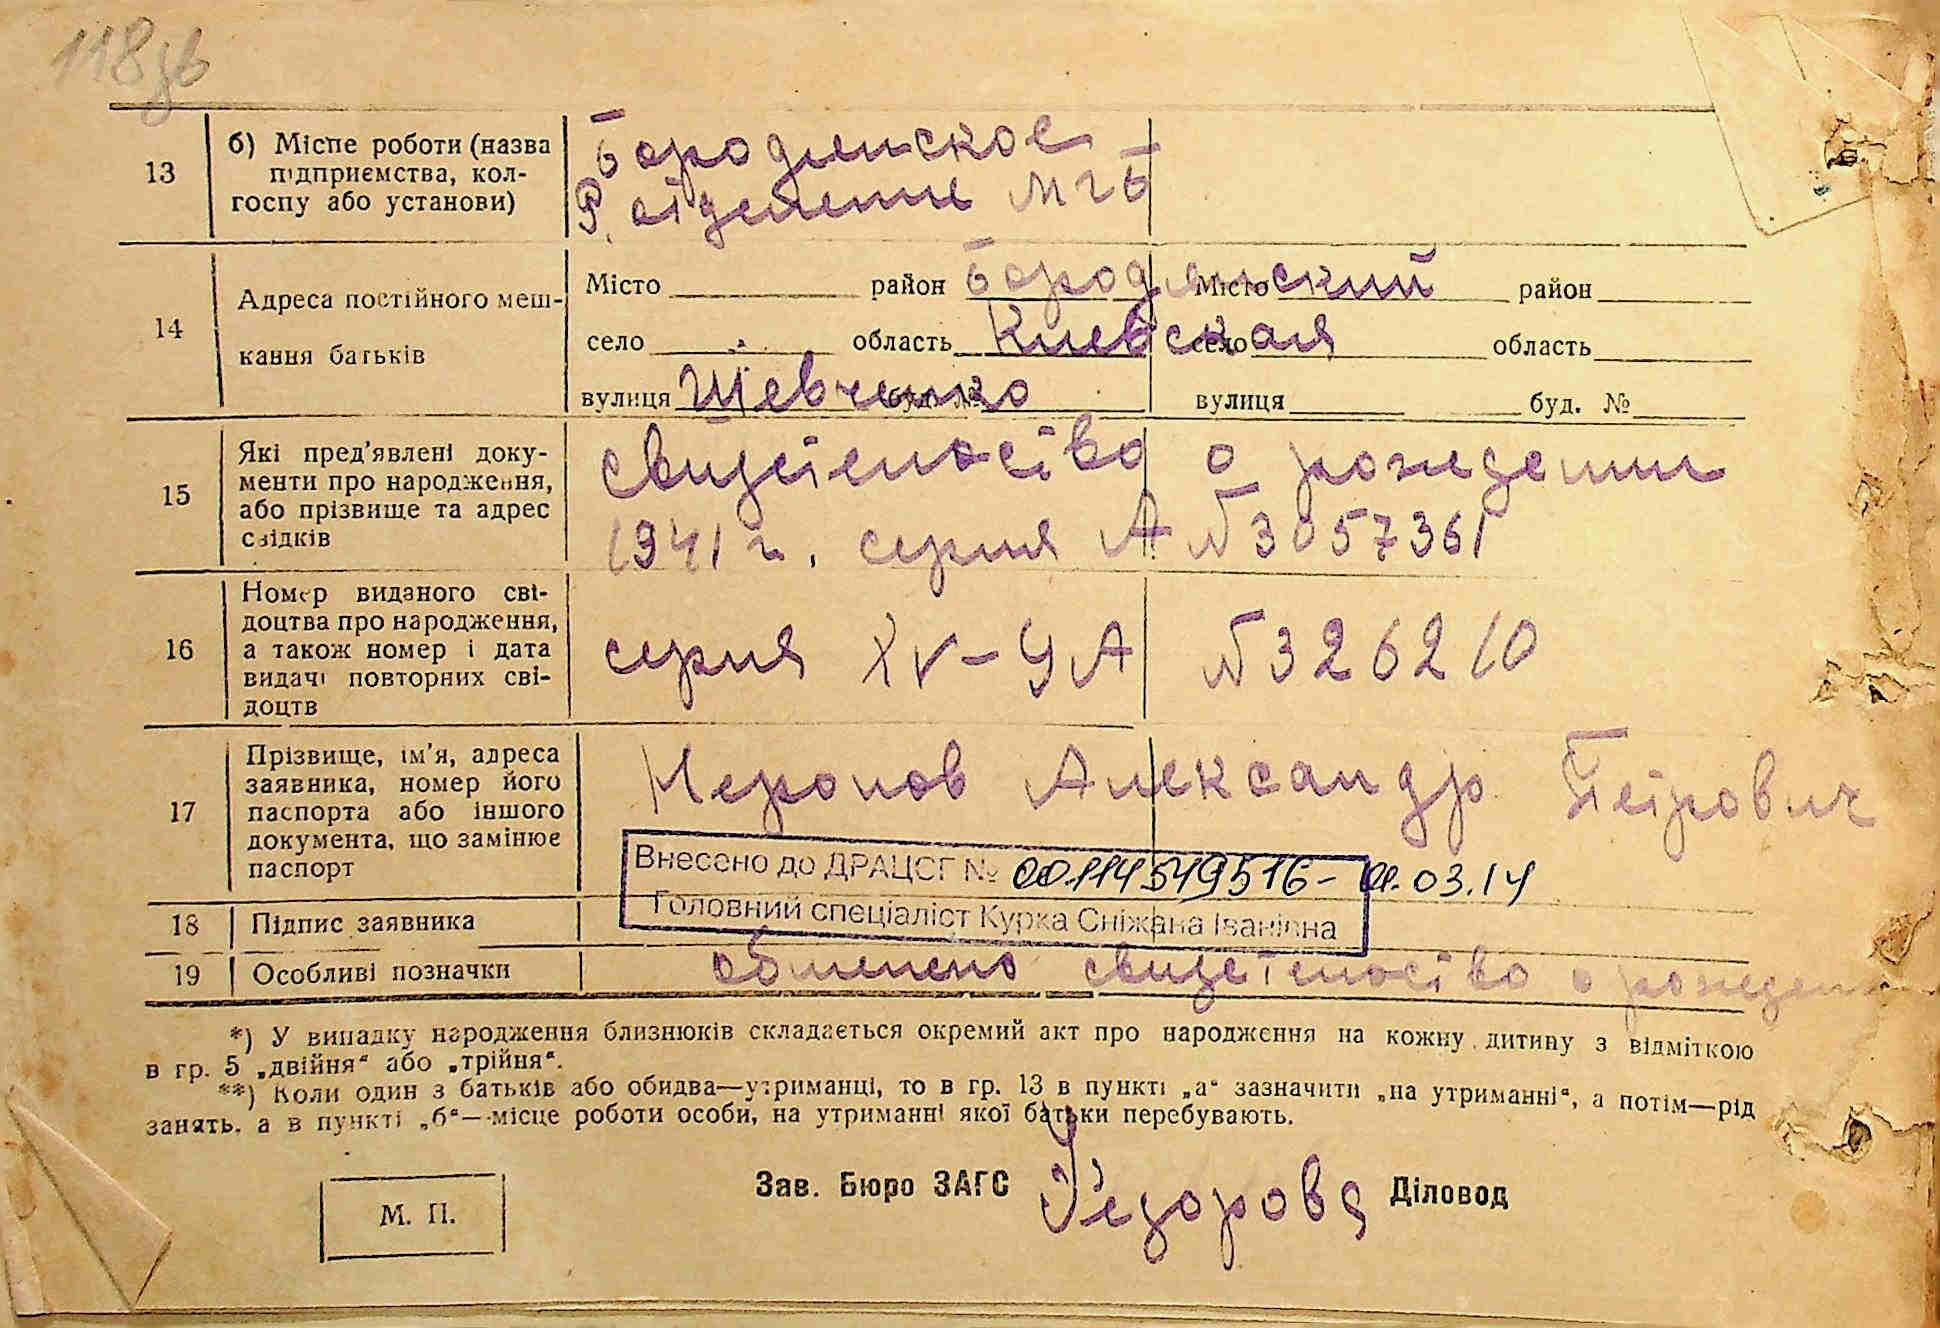 118зв
13
б) Місце роботи (назва
підприємства, кол-
госпу або установи)
Бородянское
Р. отделение МГБ
14
Адреса постійного меш-
кання батьків
Місто район Бородянский
село область Киевская
вулиця Шевченко буд. №
Місто район
село область
вулиця буд. №
15
Які пред'явлені доку-
менти про народження,
або прізвище та адрес
свідків
Свидетельство о рождении
1941 г. серия А №3057361
16
Номер виданого сві-
доцтва про народження,
а також номер і дата
видачі повторних сві-
доцтв
серия XV-УА №326210
17
Прізвище, ім'я, адреса
заявника, номер його
паспорта або іншого
документа, що замінює
паспорт
Неронов Александр Петрович
Внесено до ДРАЦСГ № 00114549516- 01.03.14
Головний спеціаліст Курка Сніжана Іванівна
18
Підпис заявника
19
Особливі позначки
обменено свидетельство о рожден
*) У випадку народження близнюків складається окремий акт про народження на кожну дитину з відміткою
в гр. 5 „двійня“ або „трійня“.
**) Коли один з батьків або обидва—утриманці, то в гр. 13 в пункті „а“ зазначити „на утриманні“, а потім—рід
занять, а в пункті „б“—місце роботи особи, на утриманні якої батьки перебувають.
М. П.
Зав. Бюро ЗАГС Федорова Діловод